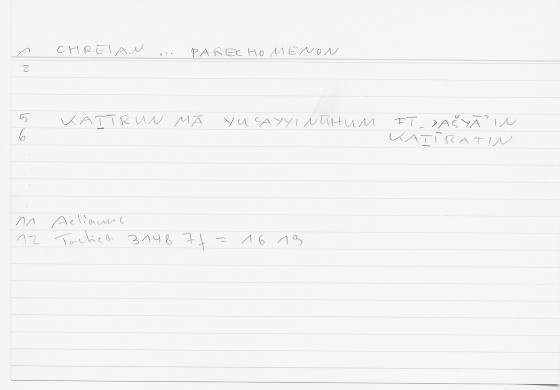 1 CHREIAN ... PARECHOMENON
2
5 KAṮĪRUN MĀ YUʿAYYINŪHUM FĪ ʾAŠYĀʾIN
6 KAṮĪRATIN
11 Aelianus
12 Tactica 314B 7f = 16 19